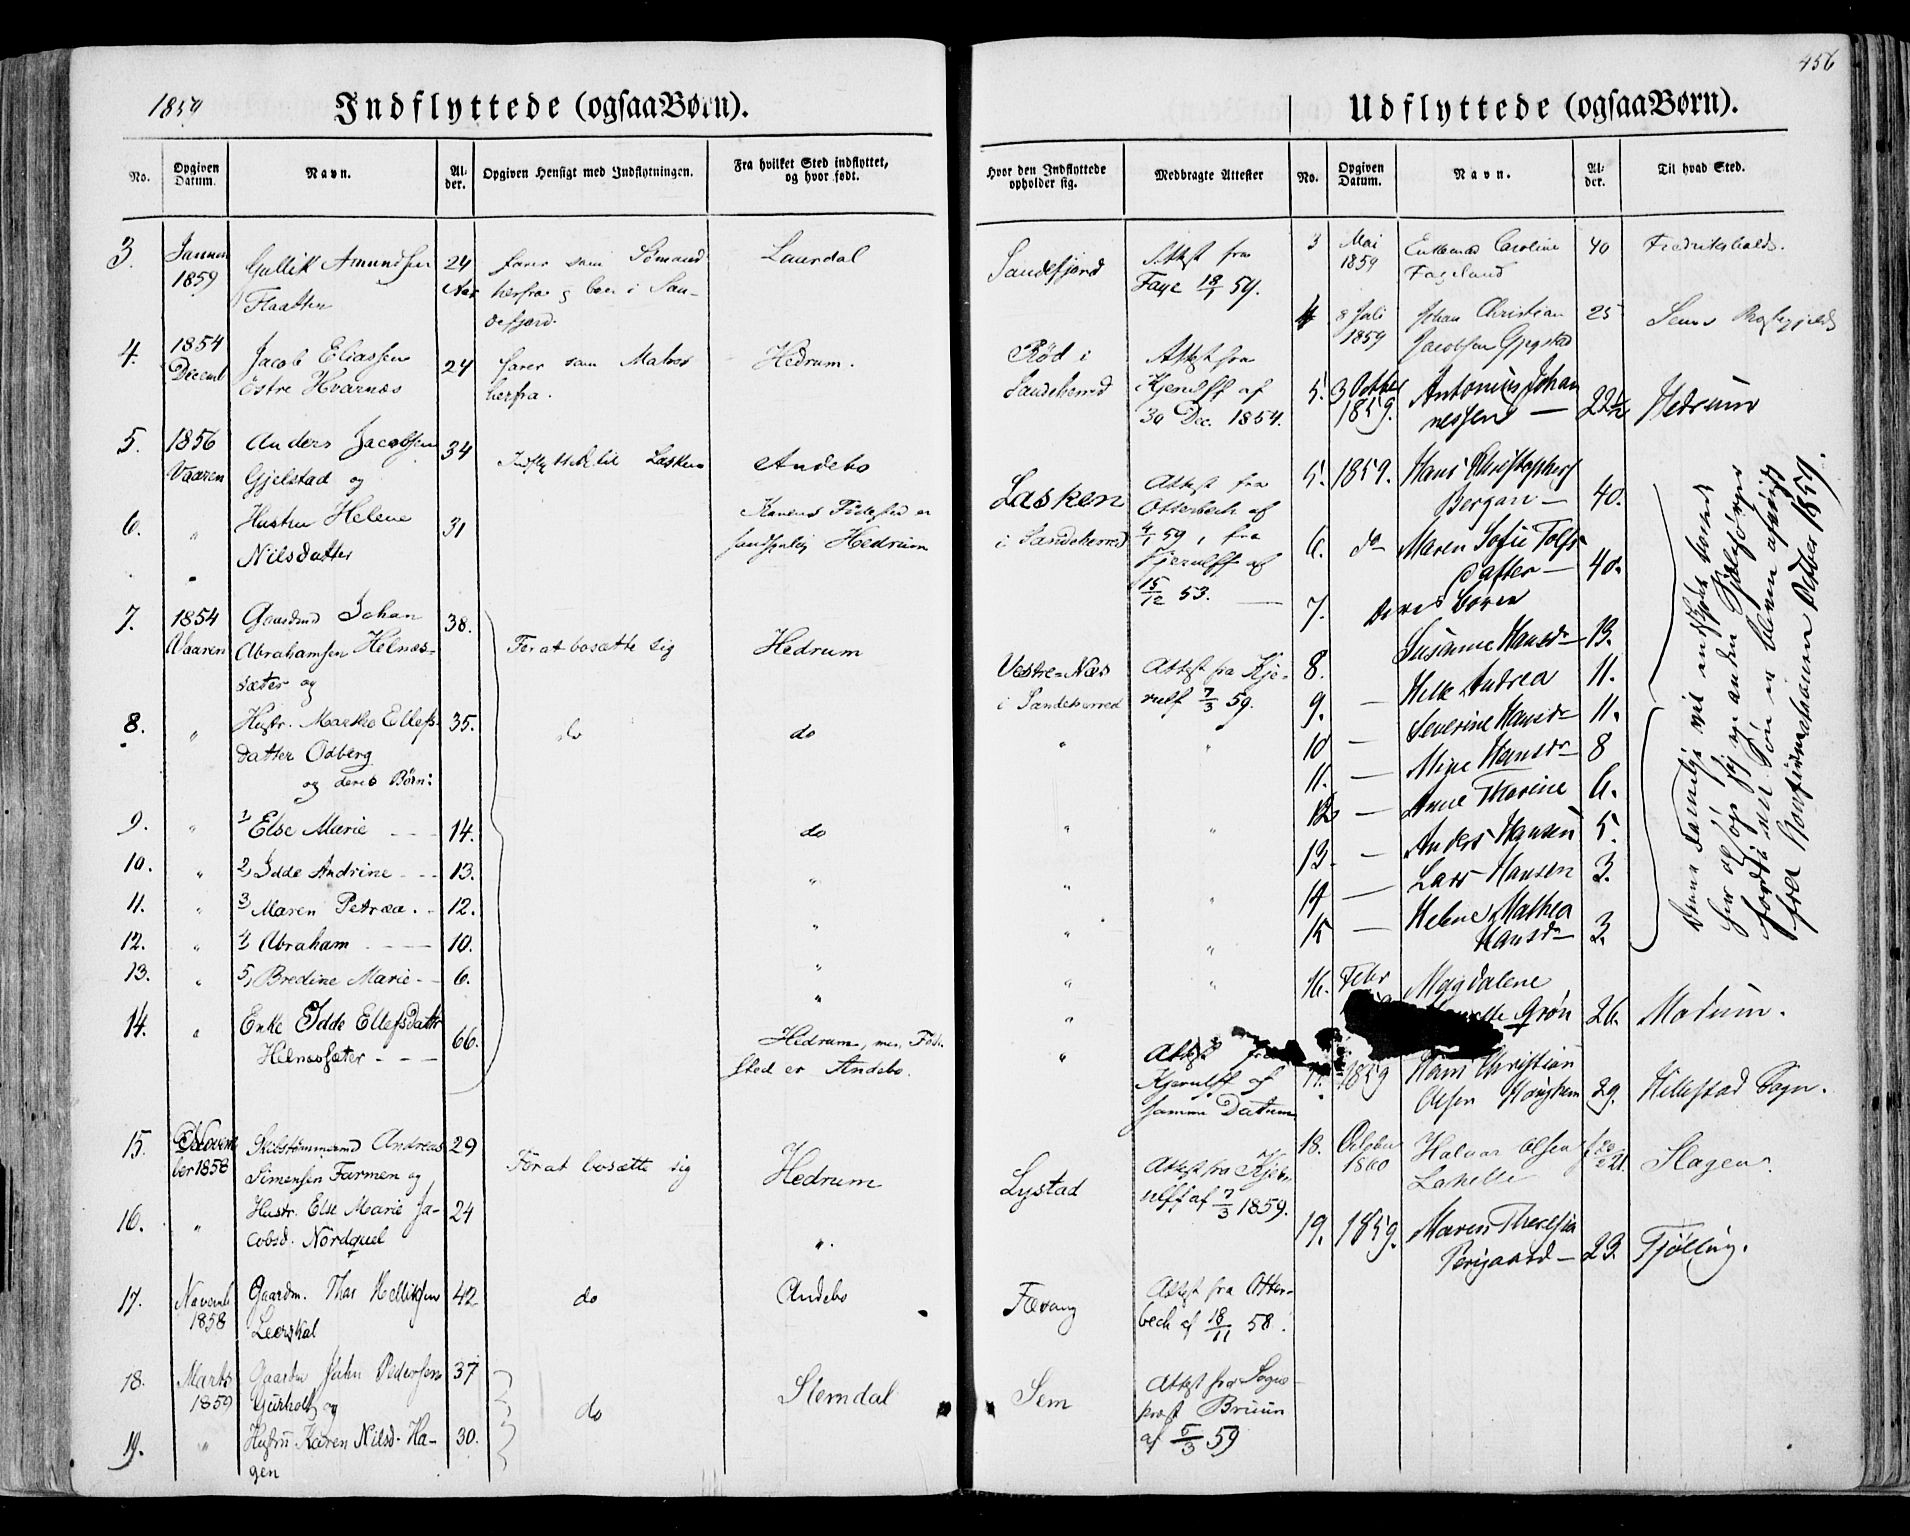 456
1859
Indflyttede (ogsaa Børn).
No.
Opgiven Datum.
Navn.
Alder.
Opgiven Hensigt med Indflytningen.
Fra hvilket Sted indflyttet, og hvor født.
Hvor den Indflyttede opholder sig.
Medbragte Attester
3. Januar 1859 Gullik Amundsen Flaatten 24 Aar farer som Sømand herfra og boer i Sandefjord. Laurdal Sandefjord Attest fra Faye 18/1 59.
4. 1854 Decemb Jacob Eliassen östre Hvarnæs 24 farer som Matros herfra. Hedrum. Rød i Sandeherred Attest fra Kjerulff af 30 Dec. 1854.
5. 1856 Vaaren Anders Jacobsen Gjelstad og 34 Indflyttet til Lasken Andebo Lasken i Sandeherred Attest fra Otterbech af 4/1 59, fra Kjerulff af 15/12 53.
6. " Hustru Helene Nilsdatter 31 Konens Födested er Hedrum
7. 1854 Vaaren Gaardmd Johan Abrahamsen Helnæssæter og 38. For at bosætte sig Hedrum Vestre-Næs i Sandeherred Attest fra Kjerulf 7/3 59.
8. " Hustr. Marthe Ellefsdatter Odberg og deres Børn: 35. do do " "
9. " 1 Else Marie 14. do " "
10. " 2, Idde Andrine 13. " " "
11. " 3 Maren Petrea. 12. " " "
12. " 4 Abraham 10. " " "
13. " 5, Bredine Marie 6. " "
14. " Enke Idde Ellefsdattr Helnæssæter 66. Hedrum, men Födsted er Andebo. " Attest fra Kjerulff af samme Datum
15. November 1858 Skibstømmermd Andreas Simensen Farmen og 29 For at bosætte sig Hedrum Lystad Attest fra Kjerulff af 7/3 1859.
16. " Hustr. Else Marie Jacobsd. Nordquel 24 "
17. Novemb 1858 Gaardm. Thor Helliksen Leerskal 42 do Andebo Fævang Attest fra Otterbech af 18/11 58.
18. Marts 1859 Gaardm John Pedersen Gurholt og 37 do Slemdal Sem Attest fra Sogneprost Bruun af 5/3 59
19. " Hustru Karen Nilsd. Hagen 30.
Udflyttede (ogsaa Børn).
No.
Opgiven Datum.
Navn.
Alder.
Til hvad Sted.
3 Mai 1859 Enkemd Caroline Fageland 40 Fredrikshald.
4 8 Juli 1859 Johan Christian Jacobsen Gjegstad 25 Sems Præstegjeld
5. 3 Octbr 1859. Antonius Johannessen 22½ Hedrum
5. 1859. Hans Christophers Bergan 40.
6. do Maren Sofie Tolfsdatter 40.
7. Deres Børn Susanne Hansdr 13.
8. Helle Andrea 11.
9. Severine Hansdr 11.
10 Mine Hansdr 8
11. Anne Thorine 6.
12 Anders Hansen 5.
13. Lars Hansen 3.
14 Helene Mathea Hansdr 3.
15
Denne Familje vil
her og
fordi
fra Confirmationen Octber 1859.
16. Febr Magdalene Grøn 26. Modum.
17. 1859 Hans Christian Olsen 29. Hillestad Sogn.
18. October 1860 Halvor Olsen 21. Slagen.
19. 1859. Maren Theresia 23. Tjølling.